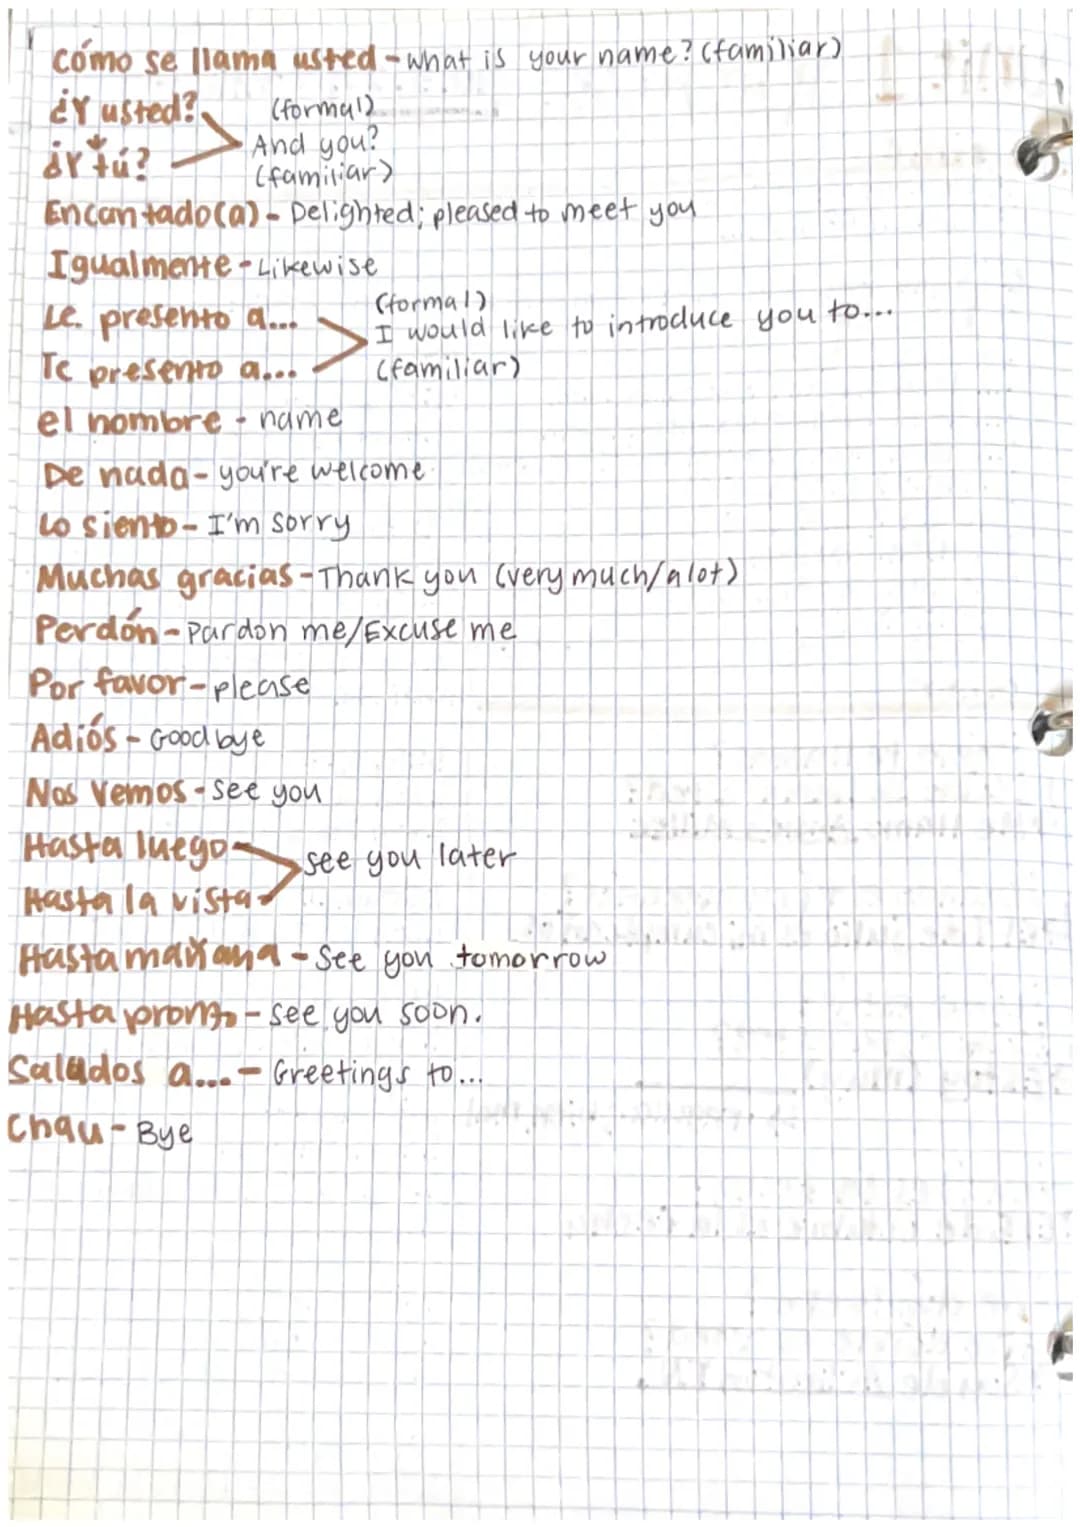 cómo se llama usted - what is your name? (familiar)
¿Y usted? (formal)
And you?
¿Y tú? (familiar)
Encantado(a) - Delighted; pleased to meet you
Igualmente - Likewise
Le presento a... (formal)
I would like to introduce you to...
Te presento a... (familiar)
el nombre - name
De nada - you're welcome
Lo siento - I'm sorry
Muchas gracias - Thank you (very much/a lot)
Perdón - Pardon me/Excuse me
Por favor - please
Adiós - Goodbye
Nos Vemos - see you
Hasta luego
see you later
Hasta la vista
Hasta mañana - See you tomorrow
Hasta pronto - see you soon.
Saludos a... - Greetings to...
Chau - Bye